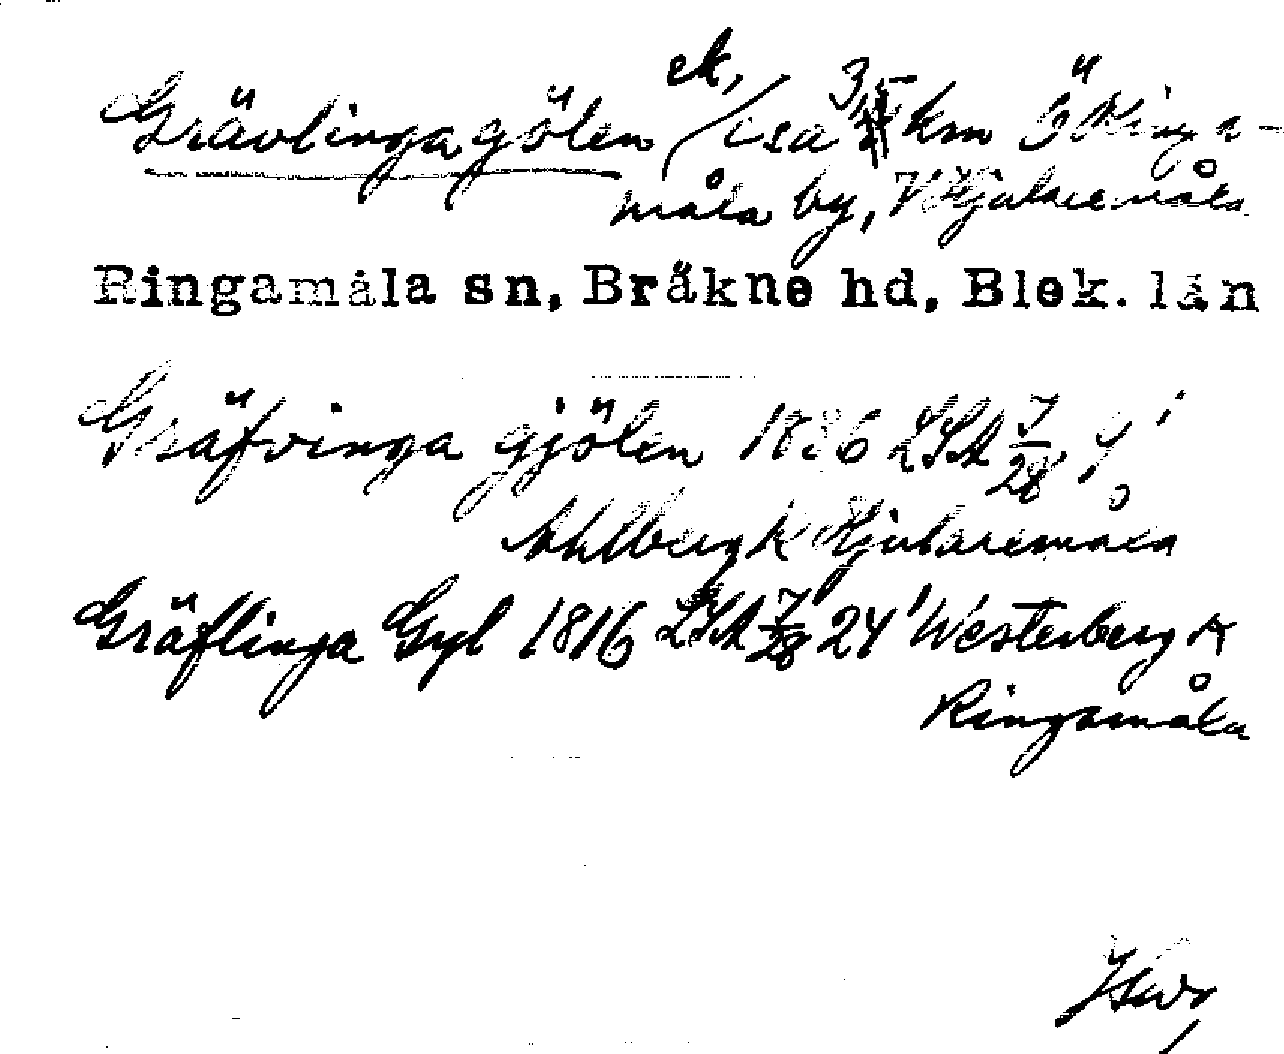 Grävlingagölen ek, / ca 3 km Ö Ringa-
måla by, V Hjulsremåla
Ringamåla sn, Bräkne hd, Blek. län
Gräfvinga gjölen 1836 LSA 7/28 9'
Ahlberg K Hjularemåla
Gräflinga Gyl 1816 LSA 7/28 24' Westerberg K
Ringamåla